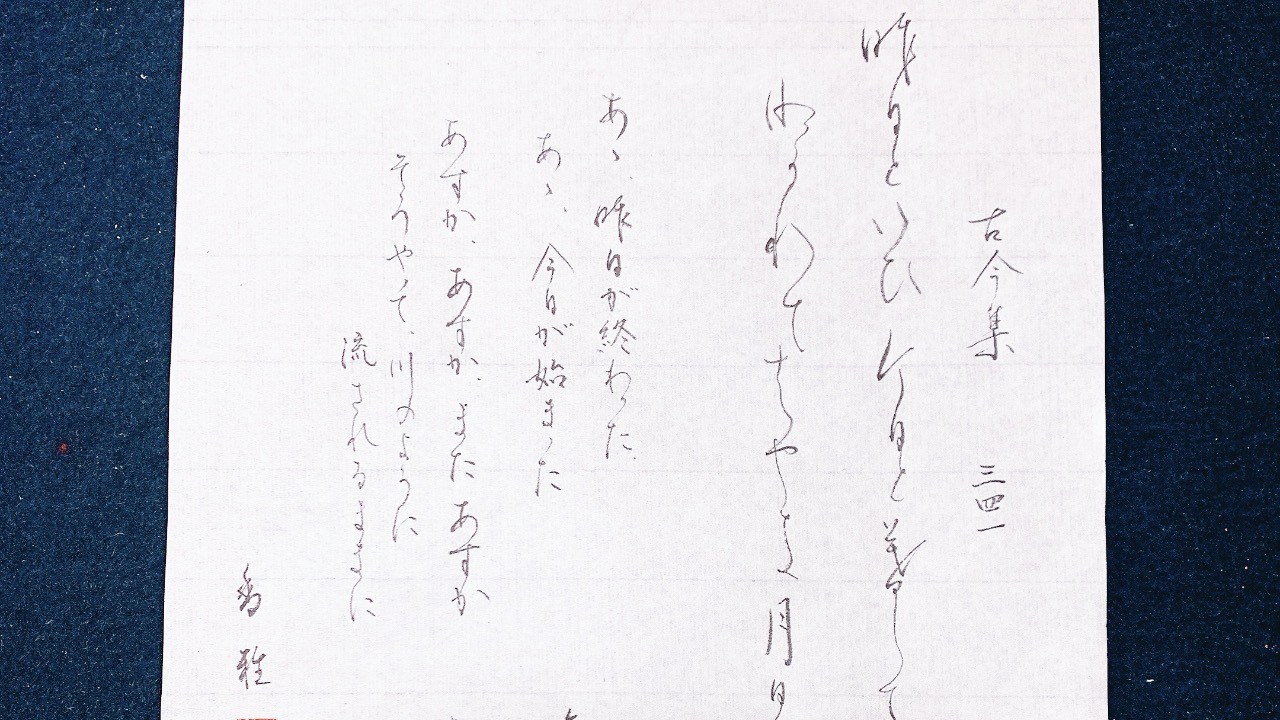 古今集 三四一
昨日といひ今日と暮して
なかれてはやき月日
あゝ、昨日が終わった
あゝ、今日が始まった
あすか、あすか、またあすか
そうやって、川のように
流されるままに
香雅